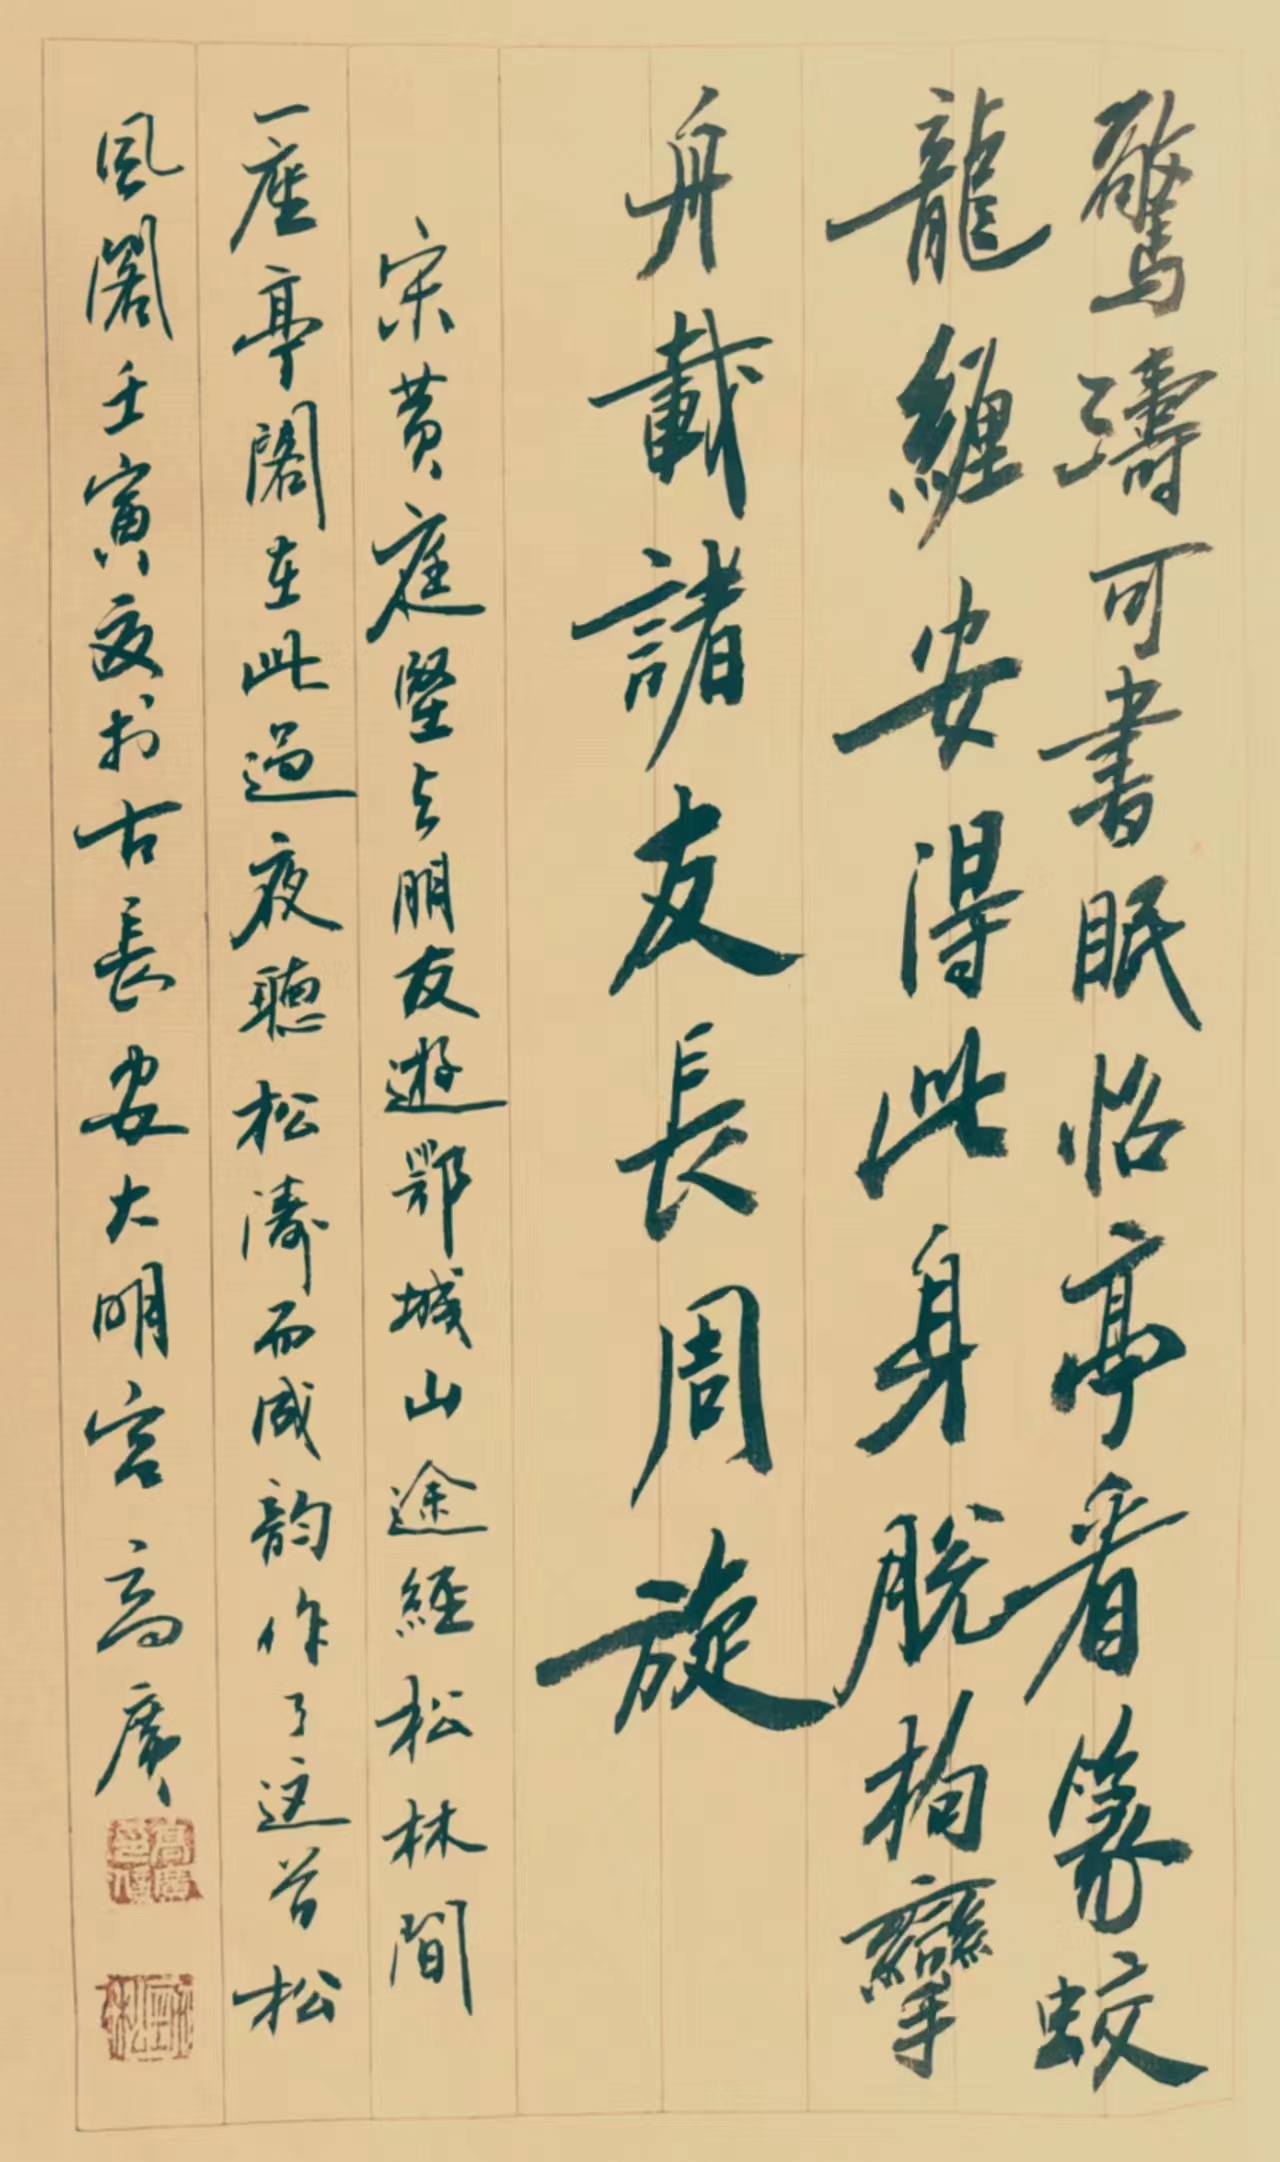 驚濤可書眠怡亭看篆蛟
龍纏安得此身脫拘攣
舟載諸友長周旋
宋黄庭堅与朋友遊鄂城山途經松林間
一座亭閣在此過夜聽松濤而成韵作了这首松
风閣壬寅夏于古長安大明宫高廣